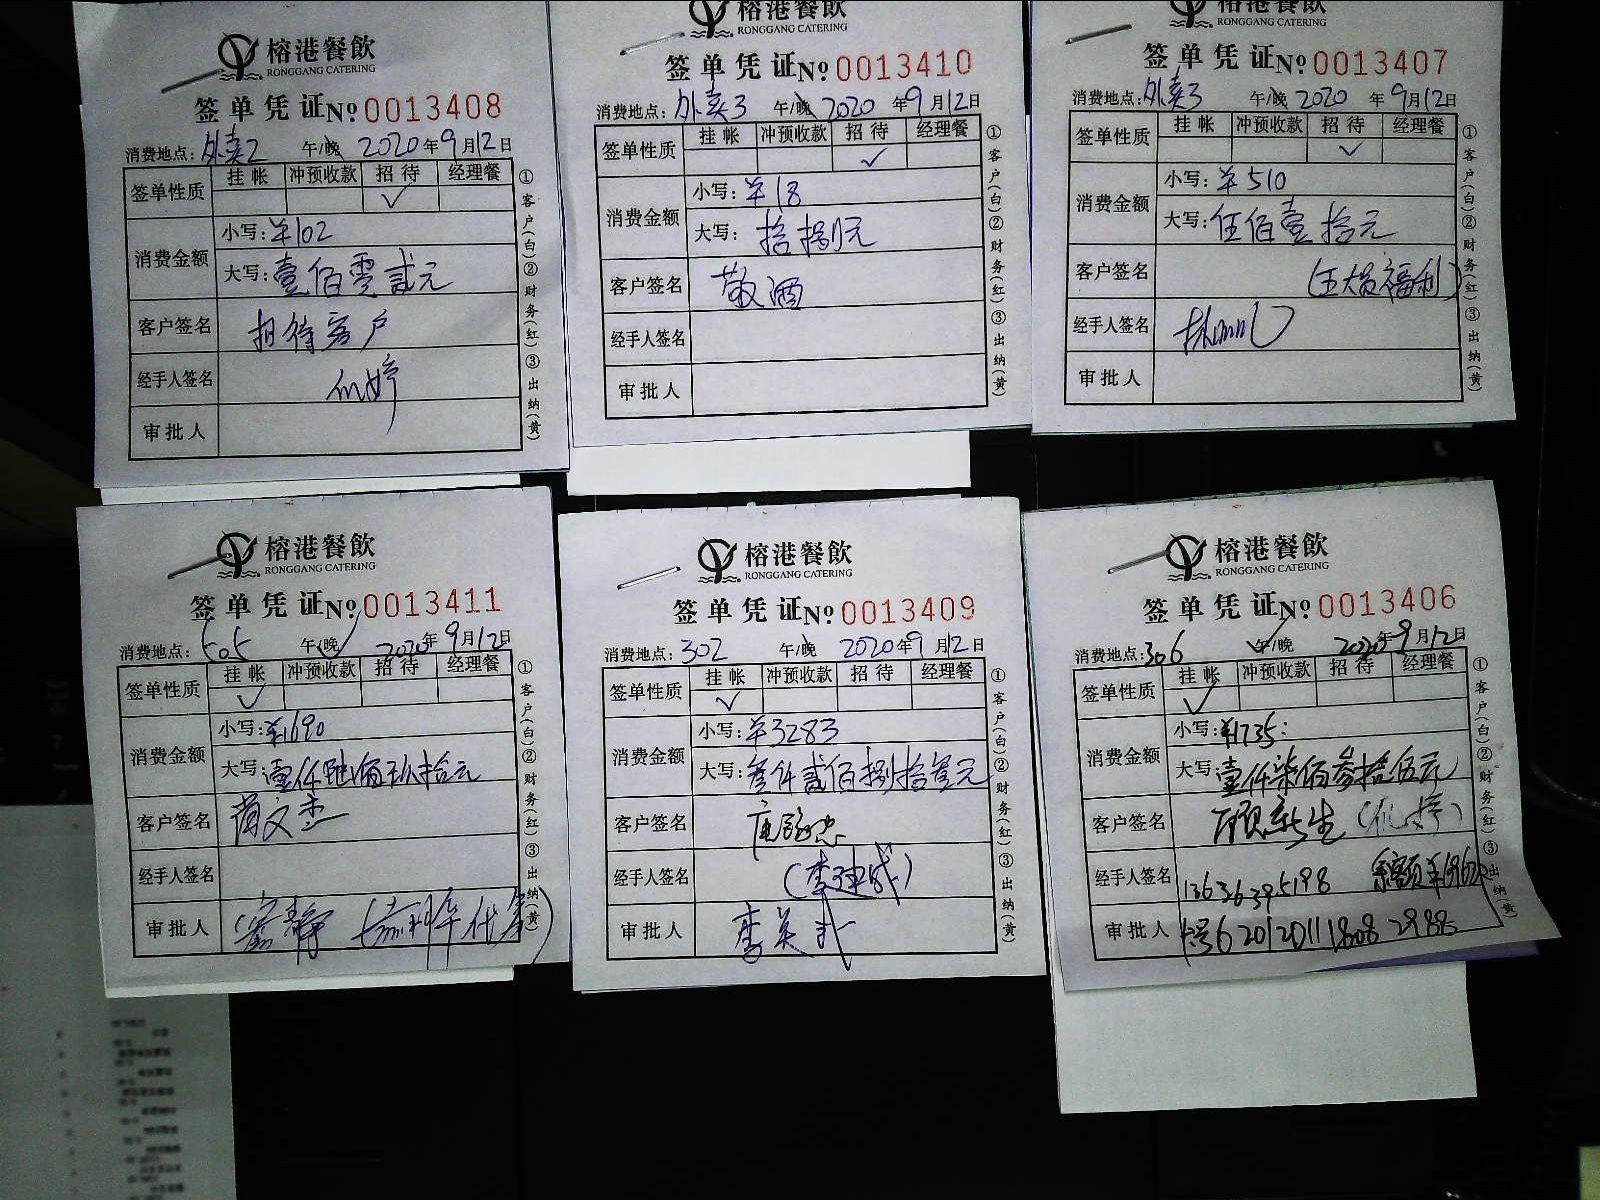 榕港餐飲
RONGGANG CATERING
签单凭证 No 0013408
消费地点: 外卖2 午/晚 2020年9月12日
签单性质 挂帐 冲预收款 招待 经理餐
✓
消费金额 小写: ¥102
大写: 壹佰零贰元
客户签名 招待客户
经手人签名
审批人
①客户(白)②财务(红)③出纳(黄)
榕港餐飲
RONGGANG CATERING
签单凭证 No 0013410
消费地点: 外卖3 午/晚 2020年9月12日
签单性质 挂帐 冲预收款 招待 经理餐
✓
消费金额 小写: ¥18
大写: 拾捌元
客户签名 敬酒
经手人签名
审批人
①客户(白)②财务(红)③出纳(黄)
榕港餐飲
RONGGANG CATERING
签单凭证 No 0013407
消费地点: 外卖3 午/晚 2020年9月12日
签单性质 挂帐 冲预收款 招待 经理餐
✓
消费金额 小写: ¥510
大写: 伍佰壹拾元
客户签名 福利)
经手人签名
审批人
①客户(白)②财务(红)③出纳(黄)
榕港餐飲
RONGGANG CATERING
签单凭证 No 0013411
消费地点: 505 午/晚 2020年9月12日
签单性质 挂帐 冲预收款 招待 经理餐
✓
消费金额 小写: ¥1690
大写: 壹仟陆佰玖拾元
客户签名
经手人签名
审批人
①客户(白)②财务(红)③出纳(黄)
榕港餐飲
RONGGANG CATERING
签单凭证 No 0013409
消费地点: 302 午/晚 2020年9月12日
签单性质 挂帐 冲预收款 招待 经理餐
✓
消费金额 小写: ¥3283
大写: 叁仟贰佰捌拾叁元
客户签名
经手人签名 (李建成)
审批人
①客户(白)②财务(红)③出纳(黄)
榕港餐飲
RONGGANG CATERING
签单凭证 No 0013406
消费地点: 306 午/晚 2020年9月12日
签单性质 挂帐 冲预收款 招待 经理餐
✓
消费金额 小写: ¥1735:
大写: 壹仟柒佰叁拾伍元
客户签名 顾新生
经手人签名 13636395198 余额
审批人
①客户(白)②财务(红)③出纳(黄)